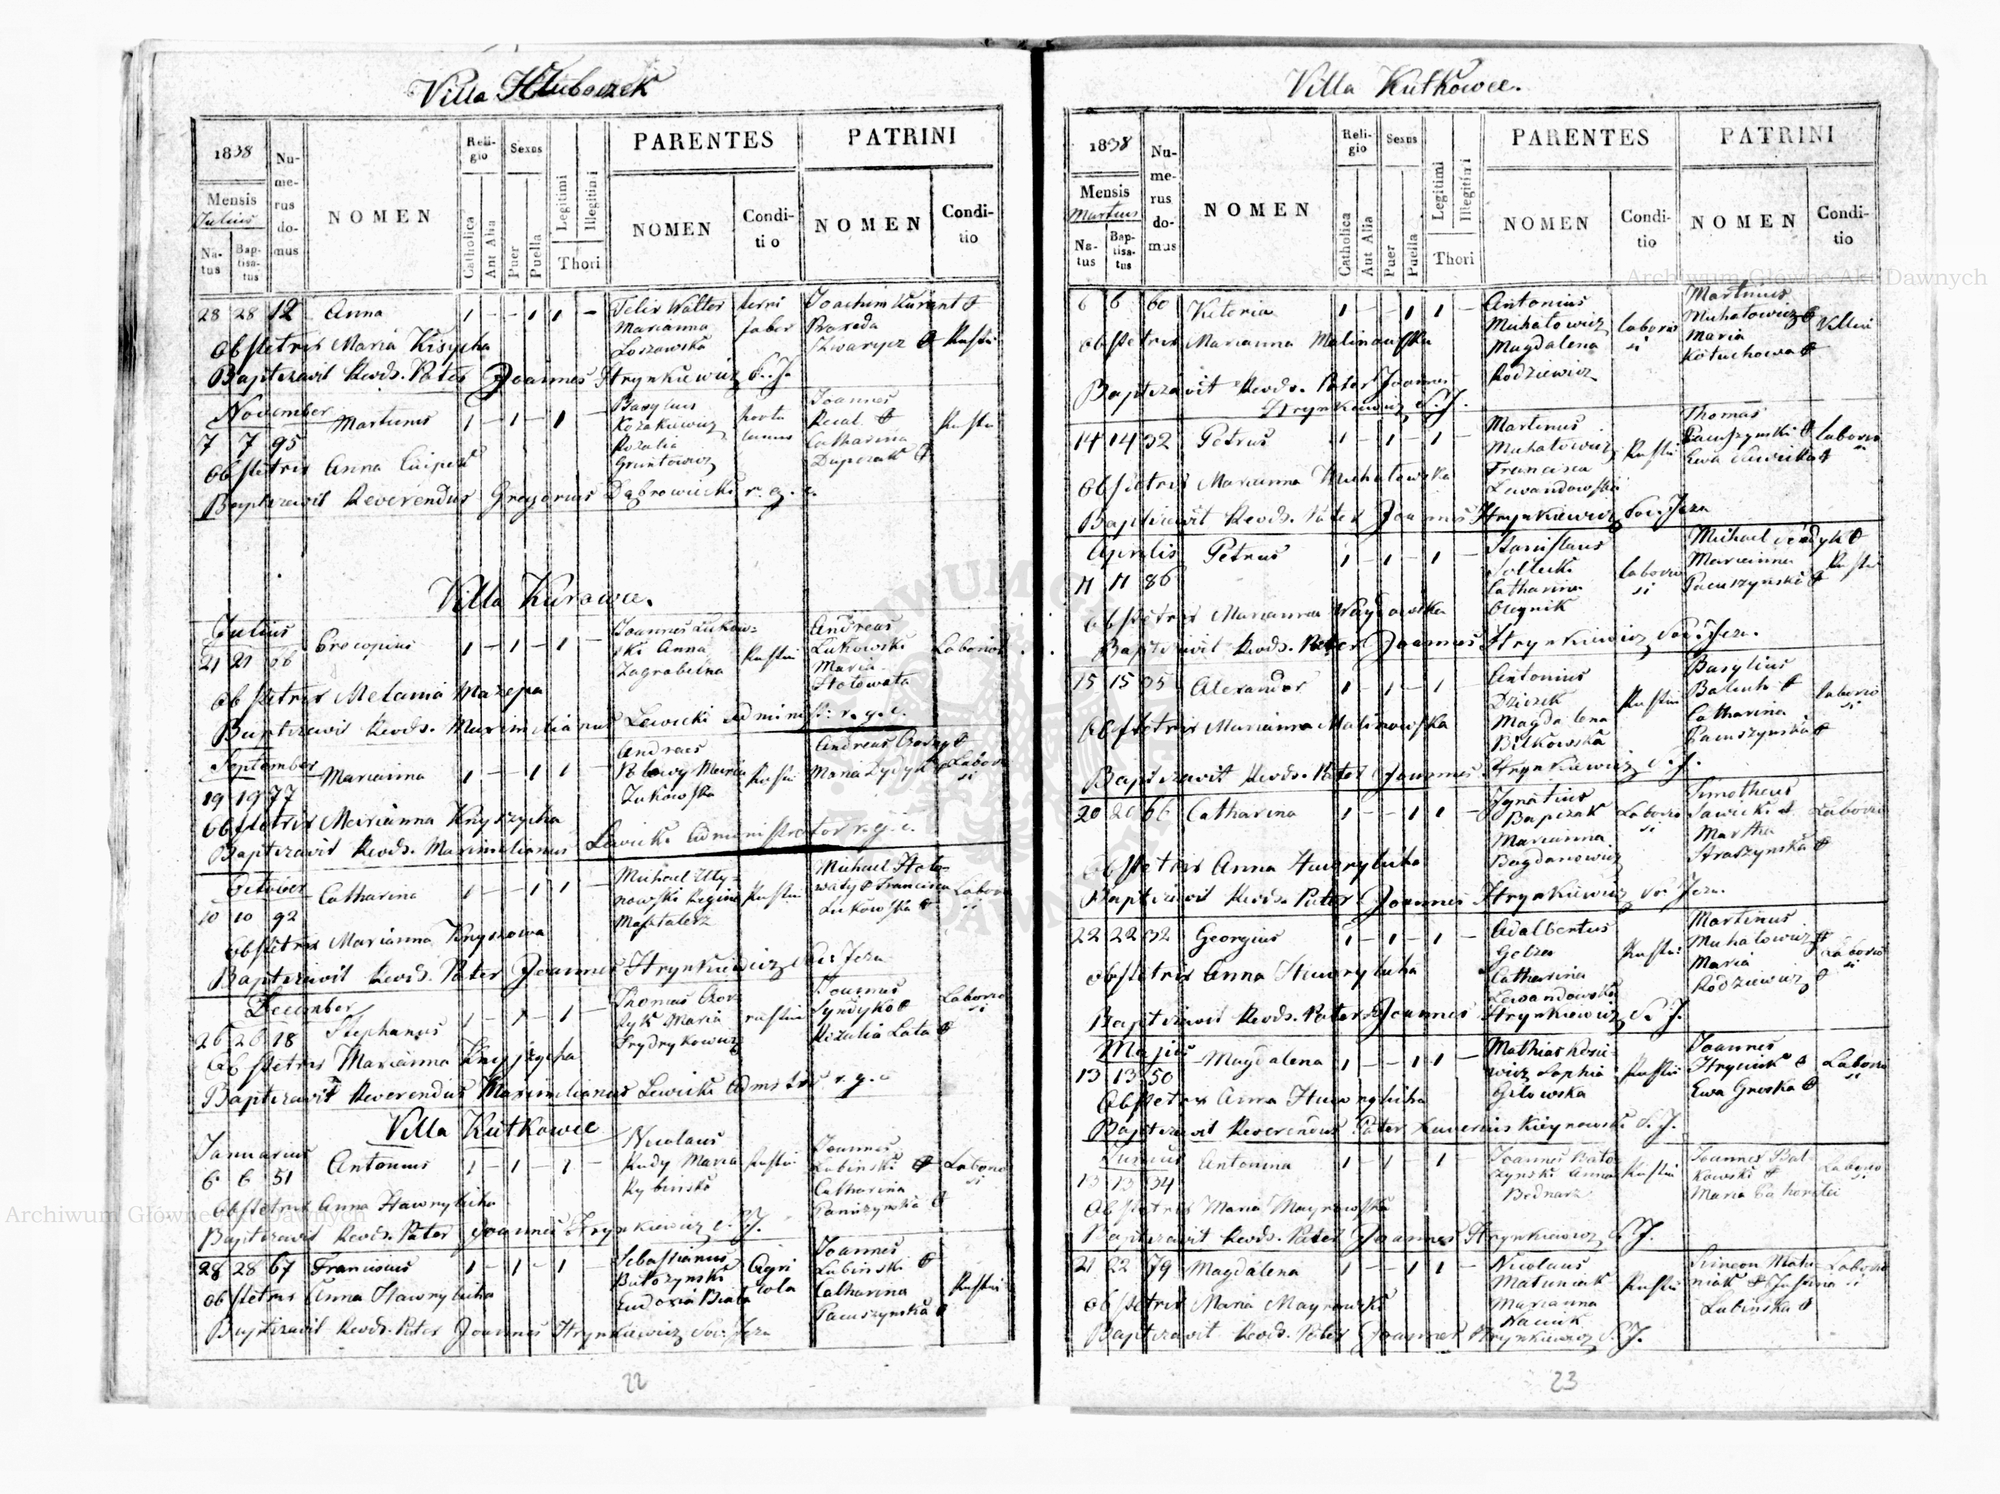 Villa Hluboczek
1838
Mensis
Julius
Na-
tus
Bap-
tisa-
tus
Nu-
me-
rus
do-
mus
NOMEN
Reli-
gio
Catholica
Aut Alia
Sexus
Puer
Puella
Legitimi
Illegitimi
Thori
PARENTES
NOMEN
Condi-
tio
PATRINI
NOMEN
Condi-
tio
28 28 12 Anna 1 - - 1 1 -
Felix Walter
Marianna
Loszowska
ferri
faber
Joachim Kurant +
Rustici
Obstetrix Maria Kisycha
Baptizavit Revds. Pater Joannes Hrynkiewicz S. J.
November
7 7 95 Martinus 1 - 1 - 1 -
Basylius
Kozakiewicz
Rozalia
Gruntowicz
Joannes
Catharina
Rustici
Obstetrix Anna
Baptizavit Reverendus Gregorius Dąbrowiecki r. g. c.
Villa Kurowce.
Julius
21 21 Procopius 1 - 1 - 1 -
Joannes Lukow-
ski Anna
Zagrabelna
Rustici
Andreas
Lukowski
Maria
Hołowata
Laboriosi
Obstetrix Melania Mazepa
Baptizavit Revds. Maximilianus Lewicki Administ: r. g. c.
September
19 19 77 Marianna 1 - - 1 1 -
Andreas
Maria
Lukowska
Rustici
Andreas
Maria
Laboriosi
Obstetrix Marianna Knyszycha
Baptizavit Revds. Maximilianus Lewicki Administrator r. g. c.
October
10 10 92 Catharina 1 - - 1 1 -
Michael
nowski Regina
Masztalerz
Rustici
Michael Hoło-
waty + Francisca
Lukowska +
Laboriosi
Obstetrix Marianna Knyszowa
Baptizavit Revds. Pater Joannes Hrynkiewicz Soc: Jezu
December
26 26 18 Stephanus 1 - 1 - 1 -
Thomas
Maria
Frydrykowicz
rustici
Joannes
Rozalia
Laboriosi
Obstetrix Marianna Knyszycha
Baptizavit Reverendus Maximilianus Lewicki Admstor r. g. c
Villa Kutkowce
Januarius
6 6 51 Antonius 1 - 1 - 1 -
Nicolaus
Rudy Maria
Rybinska
Rustici
Joannes
Lubinski +
Catharina
Paruszynska +
Laboriosi
Obstetrix Anna Hawrylicha
Baptizavit Revds. Pater Joannes Hrynkiewicz S. J.
28 28 67 Franciscus 1 - 1 - 1 -
Sebastianus
Batoszynski
Eudoxia Biała
Agri
cola
Joannes
Lubinski +
Catharina
Paruszynska +
Rustici
Obstetrix Anna Hawrylicha
Baptizavit Revds. Pater Joannes Hrynkiewicz Soc. Jezu
22
Villa Kutkowce.
1838
Mensis
Martius
Na-
tus
Bap-
tisa-
tus
Nu-
me-
rus
do-
mus
NOMEN
Reli-
gio
Catholica
Aut Alia
Sexus
Puer
Puella
Legitimi
Illegitimi
Thori
PARENTES
NOMEN
Condi-
tio
PATRINI
NOMEN
Condi-
tio
6 6 60 Victoria 1 - - 1 1 -
Antonius
Michałowicz
Magdalena
Rodziewicz
laborio
si
Martinus
Michałowicz +
Maria
Kotuchowa +
Obstetrix Marianna Malinowska
Baptizavit Revds. Pater Joannes
Hrynkiewicz S. J.
14 14 32 Petrus 1 - 1 - 1 -
Martinus
Michałowicz
Francisca
Lewandowska
Rustici
Thomas
Paruszynski +
Ewa
laborio
si
Obstetrix Marianna Michałowska
Baptizavit Revds. Pater Joannes Hrynkiewicz Soc. Jezu
Aprilis
11 11 86 Petrus 1 - 1 - 1 -
Stanislaus
Soltecki
Catharina
Oleynik
laborio
si
Michael
Marianna
Paruszynska +
Rustici
Obstetrix Marianna
Baptizavit Revds. Pater Joannes Hrynkiewicz Soc. Jezu.
15 15 35 Alexander 1 - 1 - 1 -
Antonius
Magdalena
Bilkowska
Rustici
Basylius
Catharina
Paruszynska +
laborio
si
Obstetrix Marianna Malinowska
Baptizavit Revds. Pater Joannes Hrynkiewicz S. J.
20 20 66 Catharina 1 - - 1 1 -
Ignatius
Marianna
Bogdanowicz
Laborio
si
Timotheus
Sawicki et
Martha
Straszynska +
Laborio
Obstetrix Anna Hawrylicha
Baptizavit Revds. Pater Joannes Hrynkiewicz So. Jezu.
22 22 32 Georgius 1 - 1 - 1 -
Adalbertus
Catharina
Lewandowska
Rustici
Martinus
Michałowicz +
Maria
Rodziewicz +
Laborio
si
Obstetrix Anna Hawrylicha
Baptizavit Revds. Pater Joannes Hrynkiewicz S. J.
Majus
13 13 50 Magdalena 1 - - 1 1 -
Mathias
wicz Sophia
Gilowska
Rustici
Joannes
Ewa Groska +
Laborio
si
Obstetrix Anna Hawrylicha
Baptizavit Reverendus Pater S. J.
Junius
13 13 34 Antonina 1 - - 1 -
Joannes Bato
szynski Anna
Bednarz
Rustici
Joannes Bal-
kowski +
Maria
Laborio
si
Obstetrix Maria Mayrowska
Baptizavit Revds. Pater Joannes Hrynkiewicz S. J.
21 22 79 Magdalena 1 - - 1 1 -
Nicolaus
Matuniak
Marianna
Rustici
Simeon Matu-
niak + Justina
Lubinska +
Laborio
si
Obstetrix Maria Mayrowska
Baptizavit Revds. Pater Joannes Hrynkiewicz S. J.
23
Archiwum Główne Akt Dawnych
Archiwum Główne Akt Dawnych